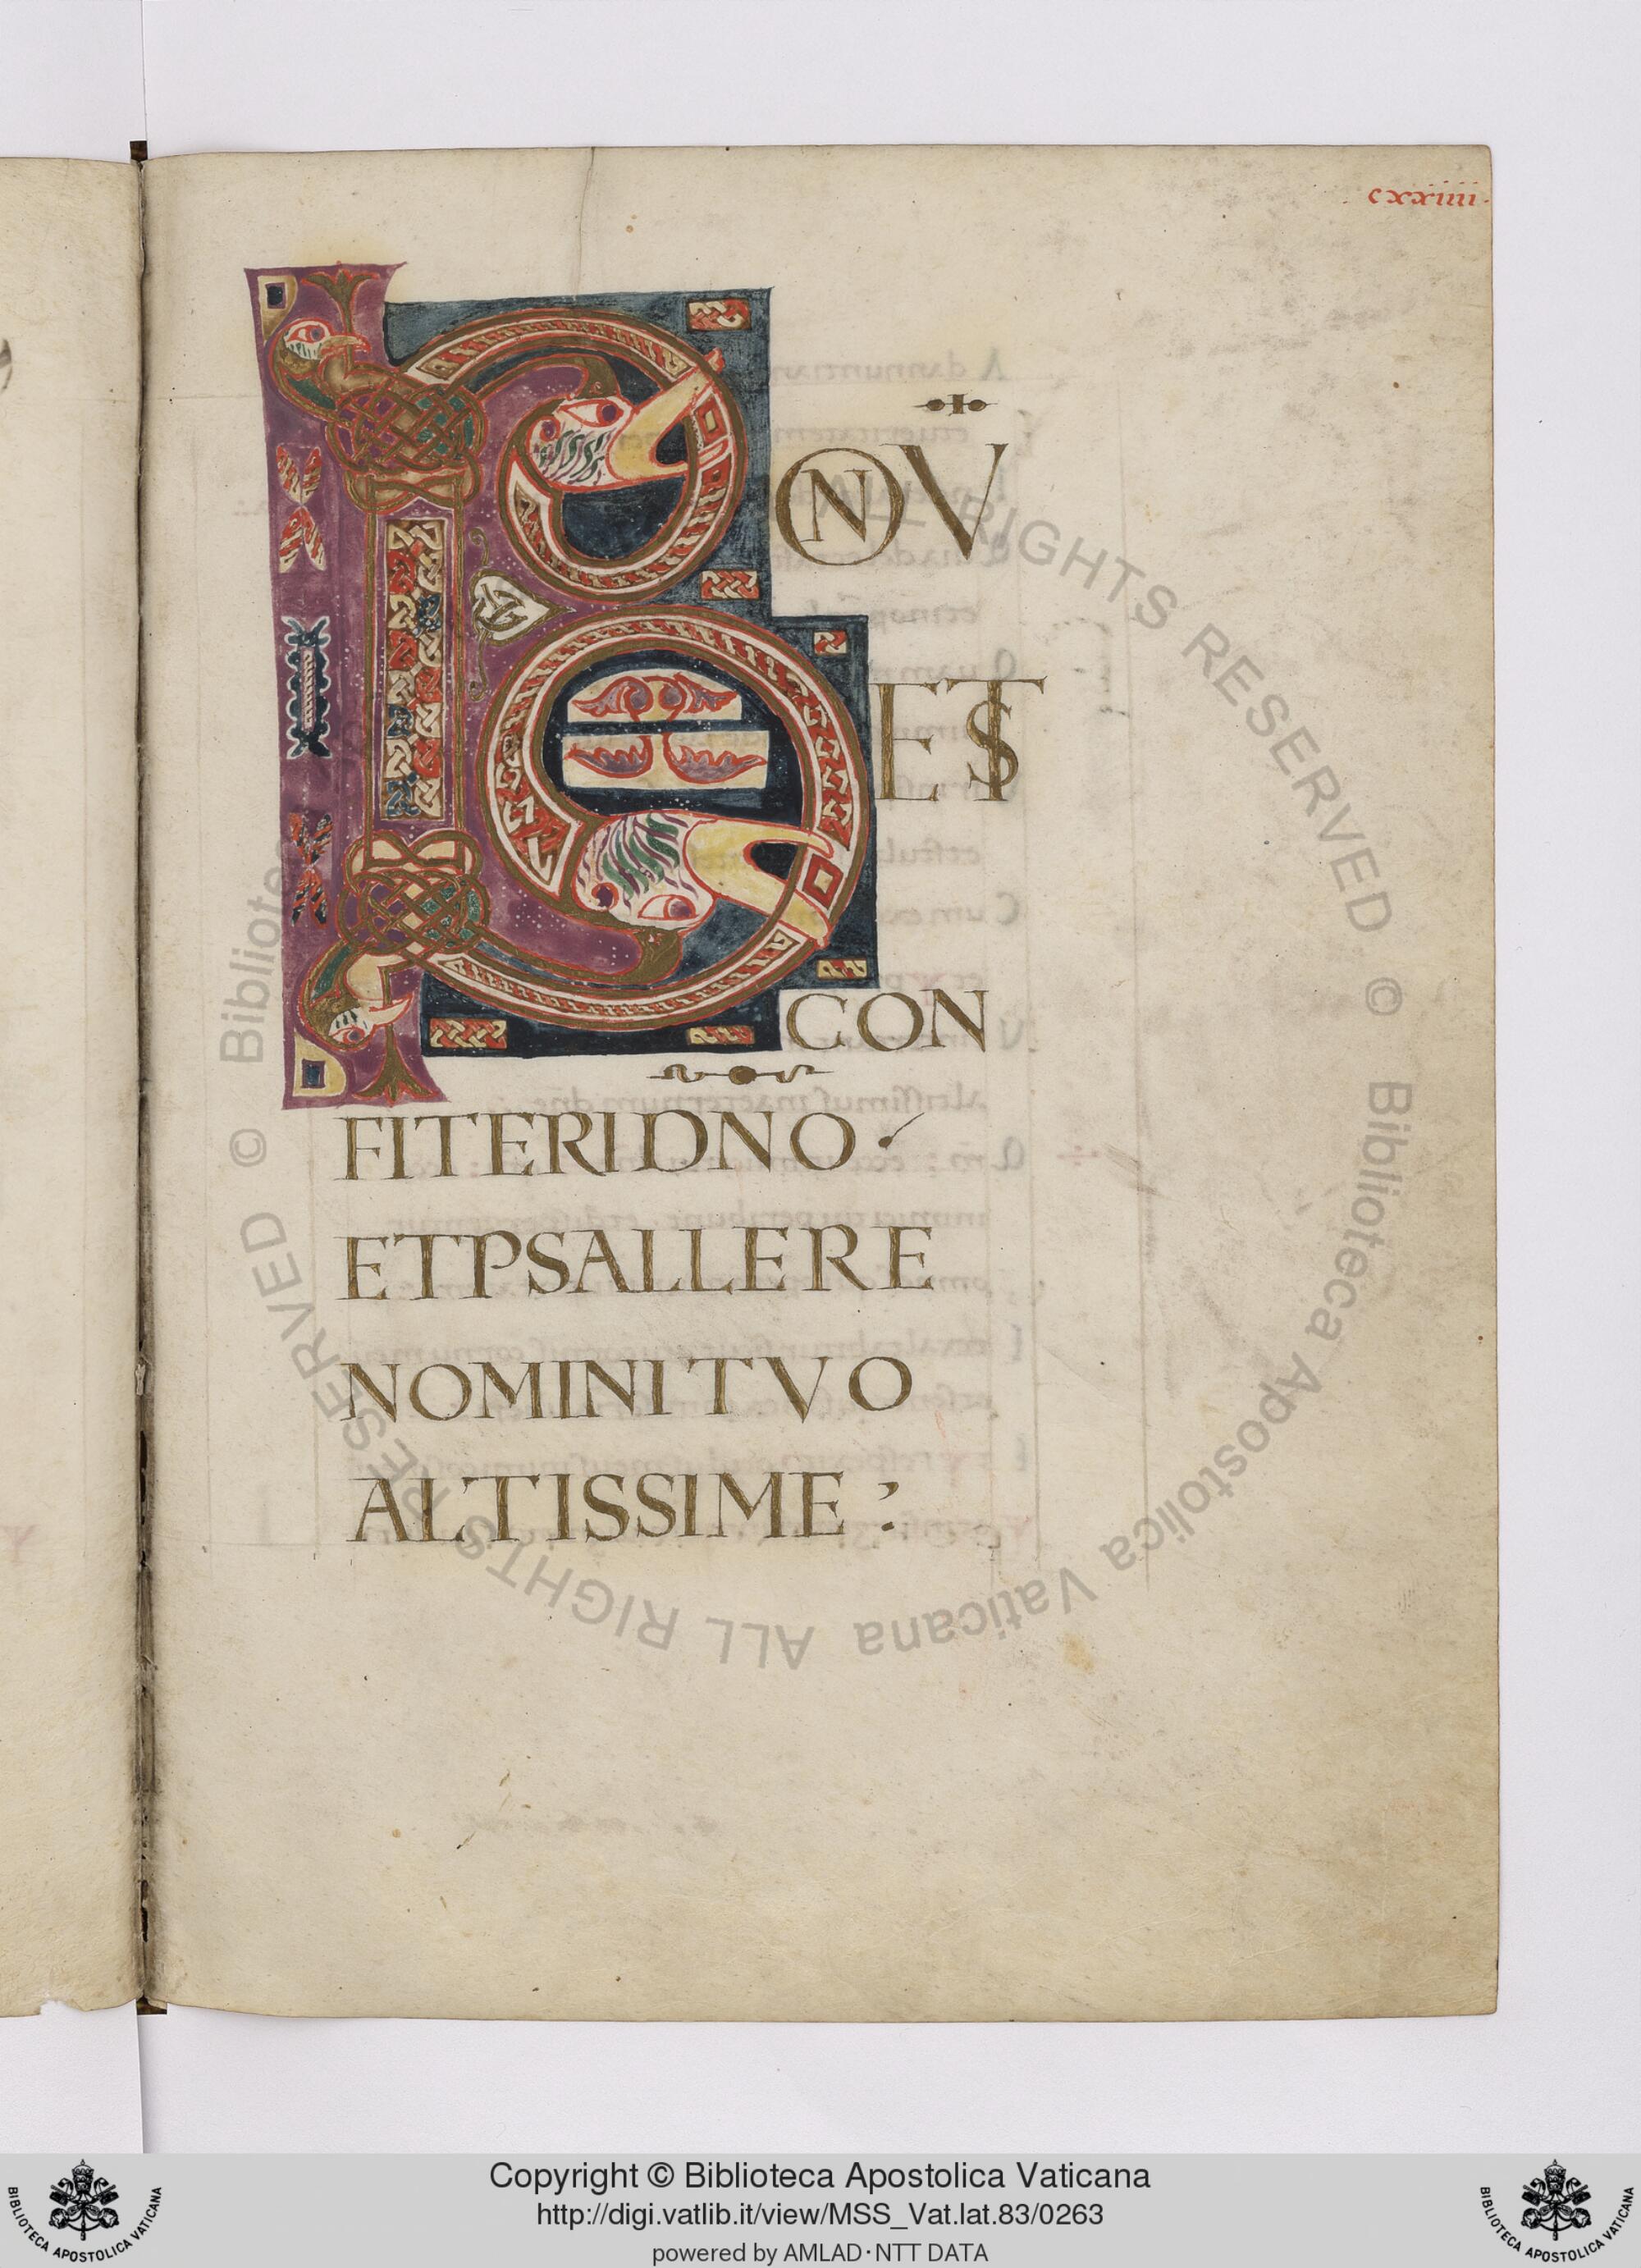 cxxiiii.
BONV
EST
CON
FITERI DNO
ET PSALLERE
NOMINI TVO
ALTISSIME:
© Biblioteca Apostolica Vaticana ALL RIGHTS RESERVED © Biblioteca Apostolica Vaticana ALL RIGHTS RESERVED
BIBLIOTECA APOSTOLICA VATICANA
Copyright © Biblioteca Apostolica Vaticana
http://digi.vatlib.it/view/MSS_Vat.lat.83/0263
powered by AMLAD·NTT DATA
BIBLIOTECA APOSTOLICA VATICANA